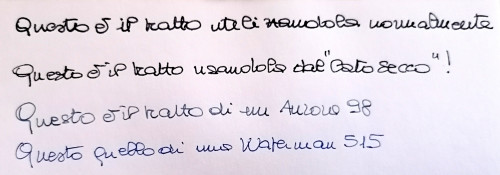 Questo è il tratto utilizzandola normalmente
Questo è il tratto usandola dal "lato secco"!
Questo è il tratto di un Aurora 98
Questo quello di una Waterman 515